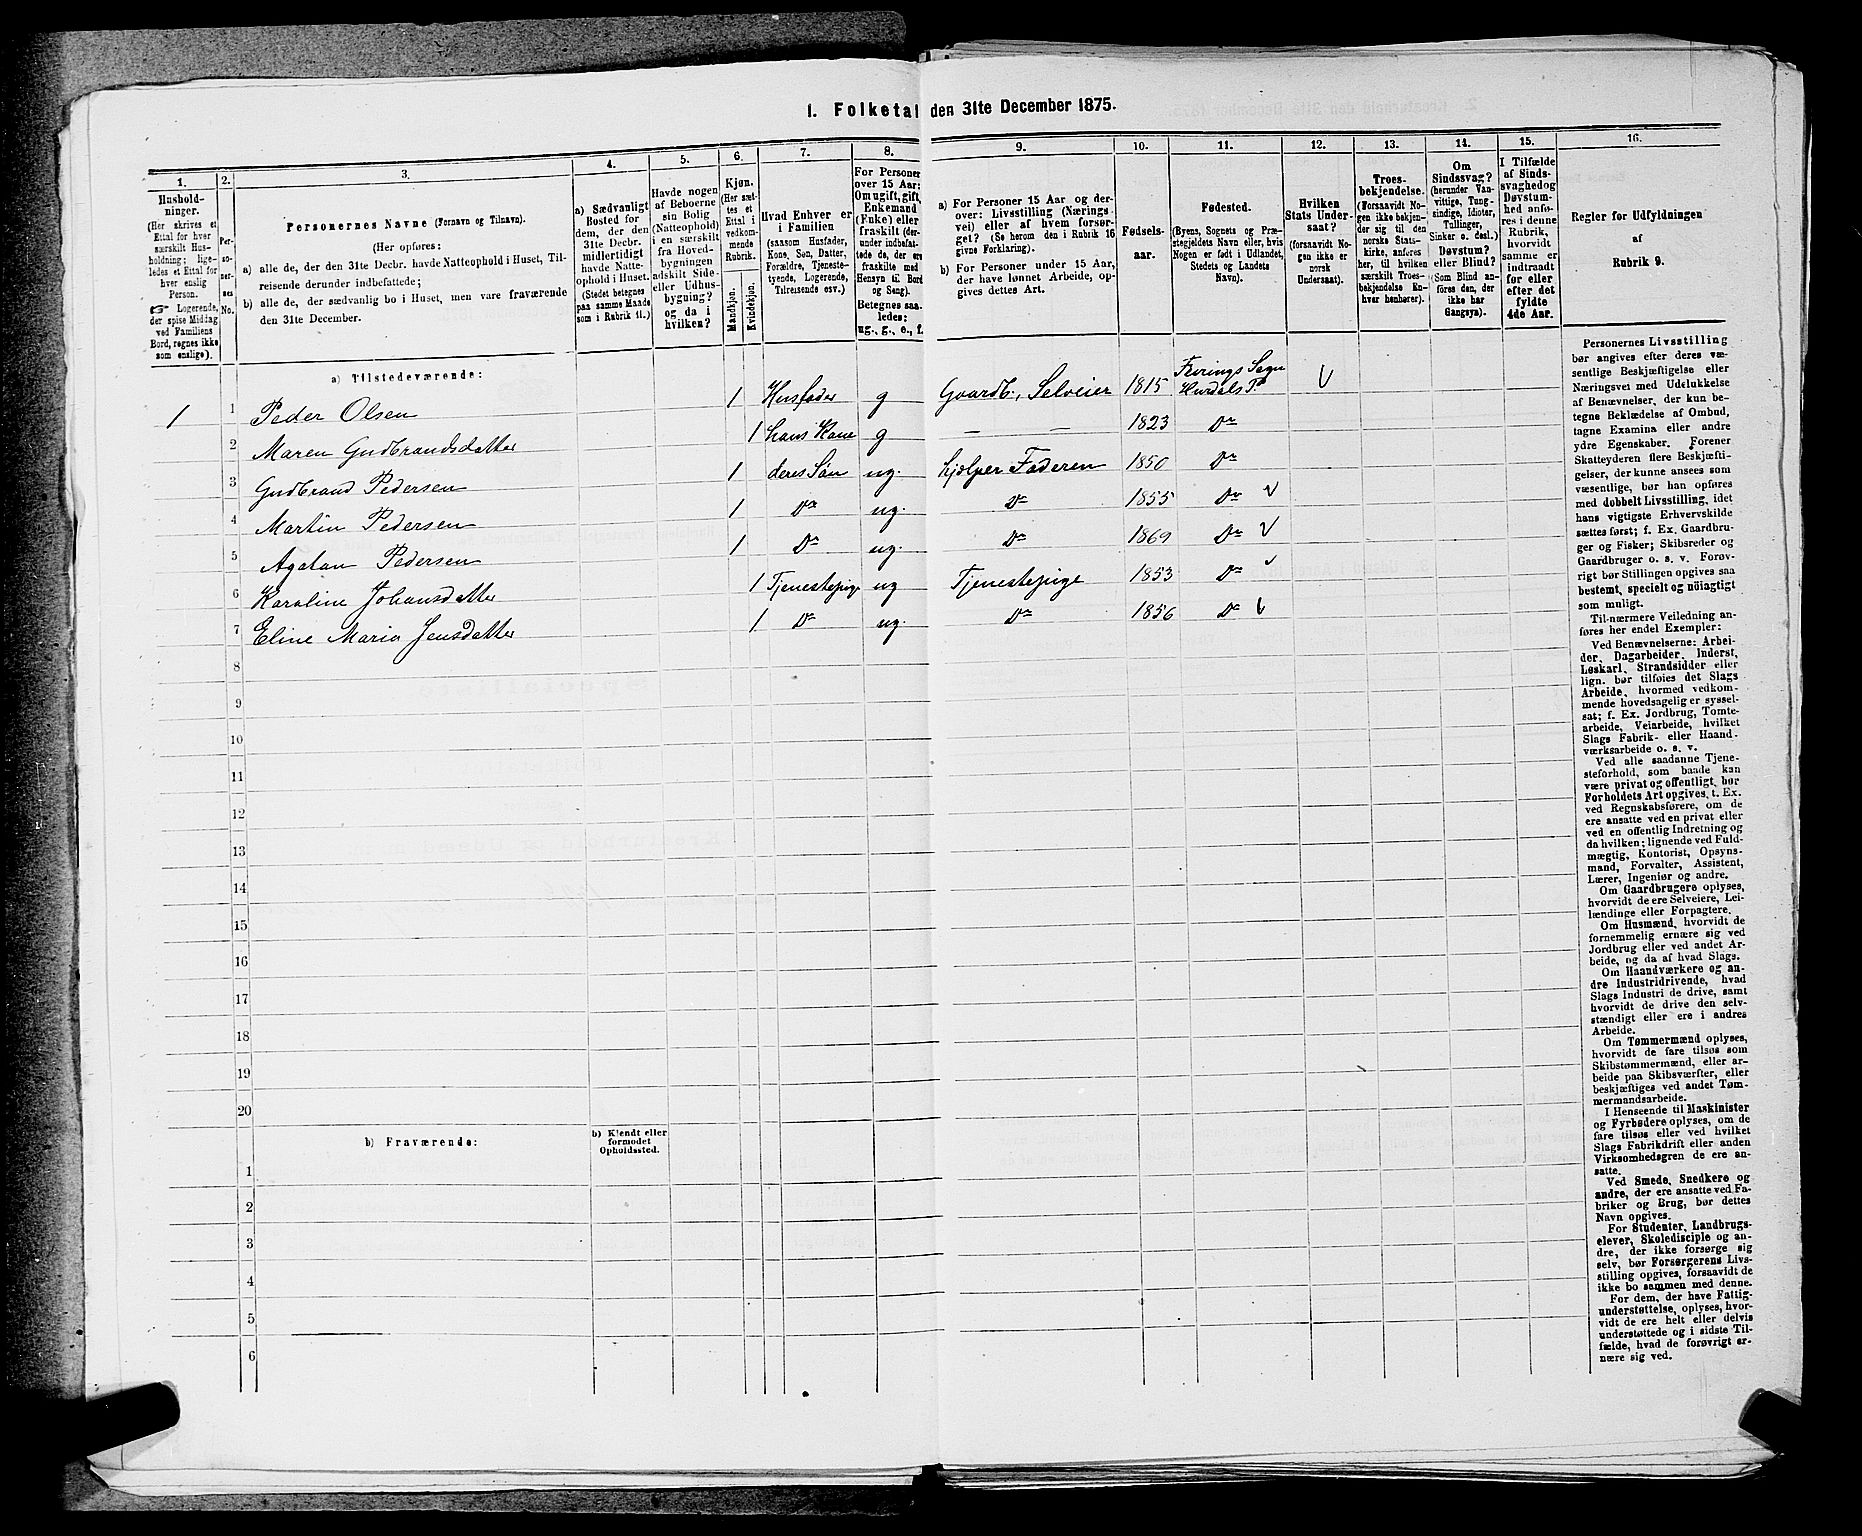 1. Folketal den 31te December 1875.
1.
2.
3.
4.
5.
6.
7.
8.
9.
10.
11.
12.
13.
14.
15.
16.
Husholdninger.
(Her skrives et
Ettal for hver
særskilt Husholdning;
ligeledes
et Ettal for
hver enslig
Person.
☞ Logerende,
der spise Middag
ved Familiens
Bord, regnes ikke
som enslige).
Personernes
No.
Personernes Navne (Fornavn og Tilnavn).
(Her opføres:
a) alle de, der den 31te Decbr. havde Natteophold i Huset, Tilreisende
derunder indbefattede;
b) alle de, der sædvanlig bo i Huset, men vare fraværende
den 31te December.
a) Sædvanligt
Bosted for
dem, der den
31te Decbr.
midlertidigt
havde Natteophold
i Huset.
(Stedet betegnes
paa samme Maade
som i Rubrik 11.)
Havde nogen
af Beboerne
sin Bolig
(Natteophold)
i en særskilt
fra Hovedbygningen
adskilt Side-
eller Udhusbygning?
og da i
hvilken?
Kjøn.
(Her sættes
et
Ettal i
vedkommende
Rubrik.
Mandkjøn.
Kvindekjøn.
Hvad Enhver er
i Familien
(saasom Husfader,
Kone, Søn, Datter,
Forældre, Tjenestetyende,
Logerende,
Tilreisende osv.)
For Personer
over 15 Aar:
Om ugift, gift,
Enkemand
(Enke) eller
fraskilt (derunder
indbefattede
de, der ere
fraskilte med
Hensyn til Bord
og Seng).
Betegnes saaledes:
ug., g., e., f.
a) For Personer 15 Aar og derover:
Livsstilling (Næringsvei)
eller af hvem forsørget?
(Se herom den i Rubrik 16
givne Forklaring).
b) For Personer under 15 Aar,
der have lønnet Arbeide, opgives
dettes Art.
Fødselsaar.
Fødested.
(Byens, Sognets og Præstegjeldets
Navn eller, hvis
Nogen er født i Udlandet,
Stedets og Landets
Navn).
Hvilken
Stats Undersaat?
(forsaavidt Nogen
ikke er
norsk
Undersaat).
Troesbekjendelse.
(Forsaavidt Nogen
ikke bekjender
sig til den
norske Statskirke,
anføres
her, til hvilken
særskilt Troesbekjendelse
Enhver
henhører).
Om
Sindssvag?
(herunder Vanvittige,
Tungsindige,
Idioter,
Tullinger,
Sinker o. desl.)
Døvstum?
eller Blind?
(Som Blind anføres
den, der
ikke har
Gangsyn).
I Tilfælde
af Sindssvaghed
og
Døvstumhed
anføres
i denne
Rubrik,
hvorvidt
samme er
indtraadt
før eller
efter det
fyldte
4de Aar.
Regler for Udfyldningen
af
Rubrik 9.
a) Tilstedeværende:
1 1 Peder Olsen 1 Husfader g Gaardb., Selveier 1815 Feirings Sogn Hurdals P. V
2 Maren Gudbrandsdatter 1 hans Kone g — — 1823 Do
3 Gudbrand Pedersen 1 deres Søn ug. hjælper Faderen 1850 Do
4 Martin Pedersen 1 Do ug. Do 1855 Do V
5 Agaton Pedersen 1 Do ug. Do 1869 Do V
6 Karoline Johansdatter 1 Tjenestepige ug Tjenestepige 1853 Do
7 Eline Maria Jensdatter 1 Do ug. Do 1856 Do V
8
9
10
11
12
13
14
15
16
17
18
19
20
b) Fraværende:
b) Kjendt eller
formodet
Opholdssted.
1
2
3
4
5
6
Personernes Livsstilling
bør angives efter deres væsentlige
Beskjæftigelse eller
Næringsvei med Udelukkelse
af Benævnelser, der kun betegne
Beklædelse af Ombud,
tagne Examina eller andre
ydre Egenskaber. Forener
Skatteyderen flere Beskjæftigelser,
der kunne ansees som
væsentlige, bør han opføres
med dobbelt Livsstilling, idet
hans vigtigste Erhvervskilde
sættes først; f. Ex. Gaardbruger
og Fisker; Skibsreder og
Gaardbruger o. s. v. Forøvrigt
bør Stillingen opgives saa
bestemt, specielt og nøiagtigt
som muligt.
Til nærmere Veiledning anføres
her endel Exempler:
Ved Benævnelserne: Arbeider,
Dagarbeider, Inderst,
Løskarl, Strandsidder eller
lign. bør tilføies det Slags
Arbeide, hvormed vedkommende
hovedsagelig er sysselsat;
f. Ex. Jordbrug, Tomtearbeide,
Veiarbeide, hvilket
Slags Fabrik- eller Haandværksarbeide
o. s. v.
Ved alle saadanne Tjenesteforhold,
som baade kan
være privat og offentligt, bør
Forholdets Art opgives, f. Ex.
ved Regnskabsførere, om de
ere ansatte ved en privat eller
ved en offentlig Indretning og
da hvilken; lignende ved Fuldmægtig,
Kontorist, Opsynsmand,
Forvalter, Assistent,
Lærer, Ingeniør og andre.
Om Gaardbrugere oplyses,
hvorvidt de ere Selveiere, Leilændinge
eller Forpagtere.
Om Husmænd, hvorvidt de
fornemmelig ernære sig ved
Jordbrug eller ved andet Arbeide,
og da af hvad Slags.
Om Haandværkere og andre
Industridrivende, hvad
Slags Industri de drive, samt
hvorvidt de drive den selvstændigt
eller ere i andres
Arbeide.
Om Tømmermænd oplyses,
hvorvidt de fare tilsøs som
Skibstømmermænd, eller arbeide
paa Skibsværfter, eller
beskjæftiges ved andet Tømmermandsarbeide.
I Henseende til Maskinister
og Fyrbødere oplyses, om de
fare tilsøs eller ved hvilket
Slags Fabrikdrift eller anden
Virksomhedsgren de ere ansatte.
Ved Smede, Snedkere og
andre, der ere ansatte ved Fabriker
og Brug, bør dettes
Navn opgives.
For Studenter, Landbrugselever,
Skoledisciple og andre,
der ikke forsørge sig
selv, bør Forsørgerens Livsstilling
opgives, forsaavidt de
ikke bo sammen med denne.
For dem, der have Fattigunderstøttelse,
oplyses, hvorvidt
de ere helt eller delvis
understøttede og i sidste Tilfælde,
hvad de forøvrigt ernære
sig ved.